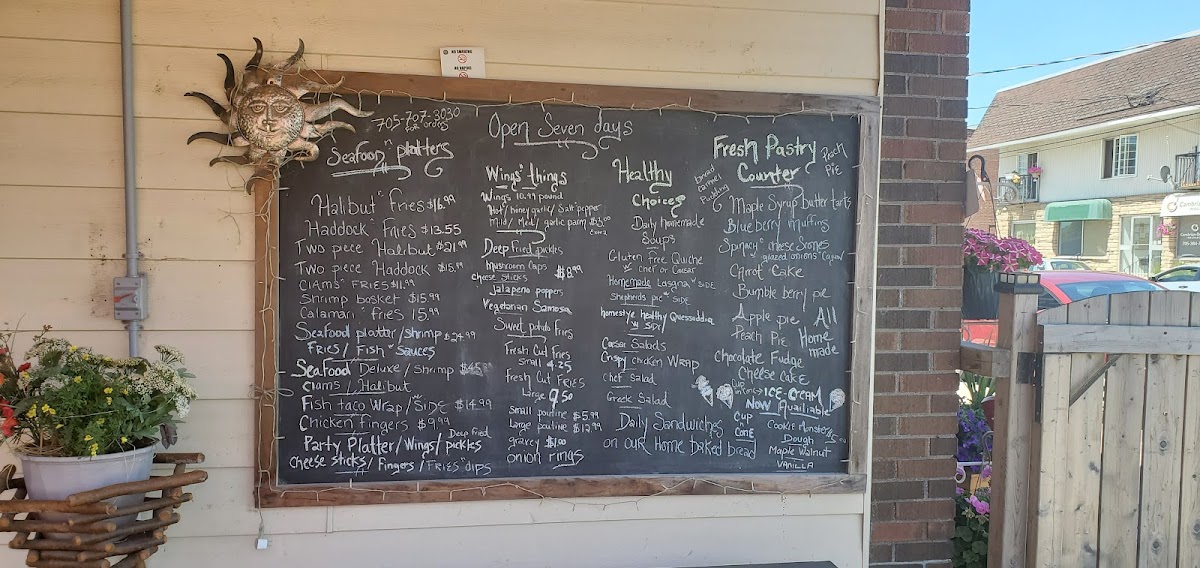 NO SMOKING
NO VAPING
705-707-3030
for orders
Open Seven days
Seafood "n" platters
Halibut "n" Fries $16.99
Haddock "n" Fries $13.55
Two piece Halibut $21.99
Two piece Haddock $15.99
Clams "n" FRIES $11.99
Shrimp basket $15.99
Calamari "n" fries 15.99
Seafood platter/shrimp $24.99
FRIES/Fish "n" sauces
Seafood Deluxe/Shrimp
Clams/Halibut
Fish taco Wrap/w SIDE $14.99
Chicken fingers $9.99
Party Platter/Wings/Deep fried pickles
Cheese sticks/Fingers/FRIES "n" dips
Wings "n" things
Wings 10.99 pound
Hot/honey garlic/Salt "n" pepper
Mild/Med/garlic parm
Deep fried pickles
mushroom caps
cheese sticks $8.99
Jalapeno poppers
Vegetarian Samosa
Sweet potato fries
Fresh Cut fries
Small 4.25
Fresh Cut FRIES
Large 9.50
Small poutine $5.99
Large poutine $12.99
gravey $1.00
onion rings
Healthy
Choices
Daily homemade
Soups
Gluten Free Quiche
w chef or Caesar
Homemade Lasgna w SIDE
Shepherds pie w SIDE
homestyle healthy Quessaddia
w SIDE
Caesar Salads
Crispy chicken WRAP
Chef salad
Greek Salad
Daily Sandwiches
on our Home baked bread
Fresh Pastry
Counter
Peach
Pie
bread
Carmel
Pudding
Maple Syrup Butter tarts
Blueberry muffins
Spinacy "n" cheese Scones
Carrot Cake
Bumble berry pie
Apple pie
Peach Pie
All
Home
made
Chocolate Fudge
Cheese cake
ICE CREAM
NOW Available
CUP
or
CONE
Cookie Monster
Dough
Maple Walnut
VANILLA